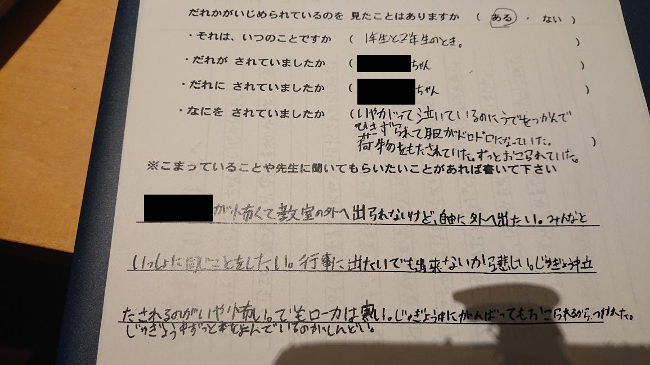 だれかがいじめられているのを 見たことはありますか ( ある ・ ない )
・それは、いつのことですか ( 1年生と2年生のとき。
・だれが されていましたか ( ちゃん
・だれに されていましたか ( ちゃん
・なにを されていましたか (いやがって泣いているのに今でをつかんで
ひきずられて服がドロドロになっていた。
荷物をもたされていた。ずっとおこられていた。 )
※こまっていることや先生に聞いてもらいたいことがあれば書いて下さい
が怖くて教室の外へ出られないけど、自由に外へ出たい。みんなと
いっしょに同じことをしたい。行事に出たいでも出来ないから悲しい。じゅぎょう中立
たされるのがいや怖い。でもローカは熱い。じゅぎょう中にがんばってもおこられるから、つかれた。
じゅぎょう中ずっと本をよんでいるのがしんどい。